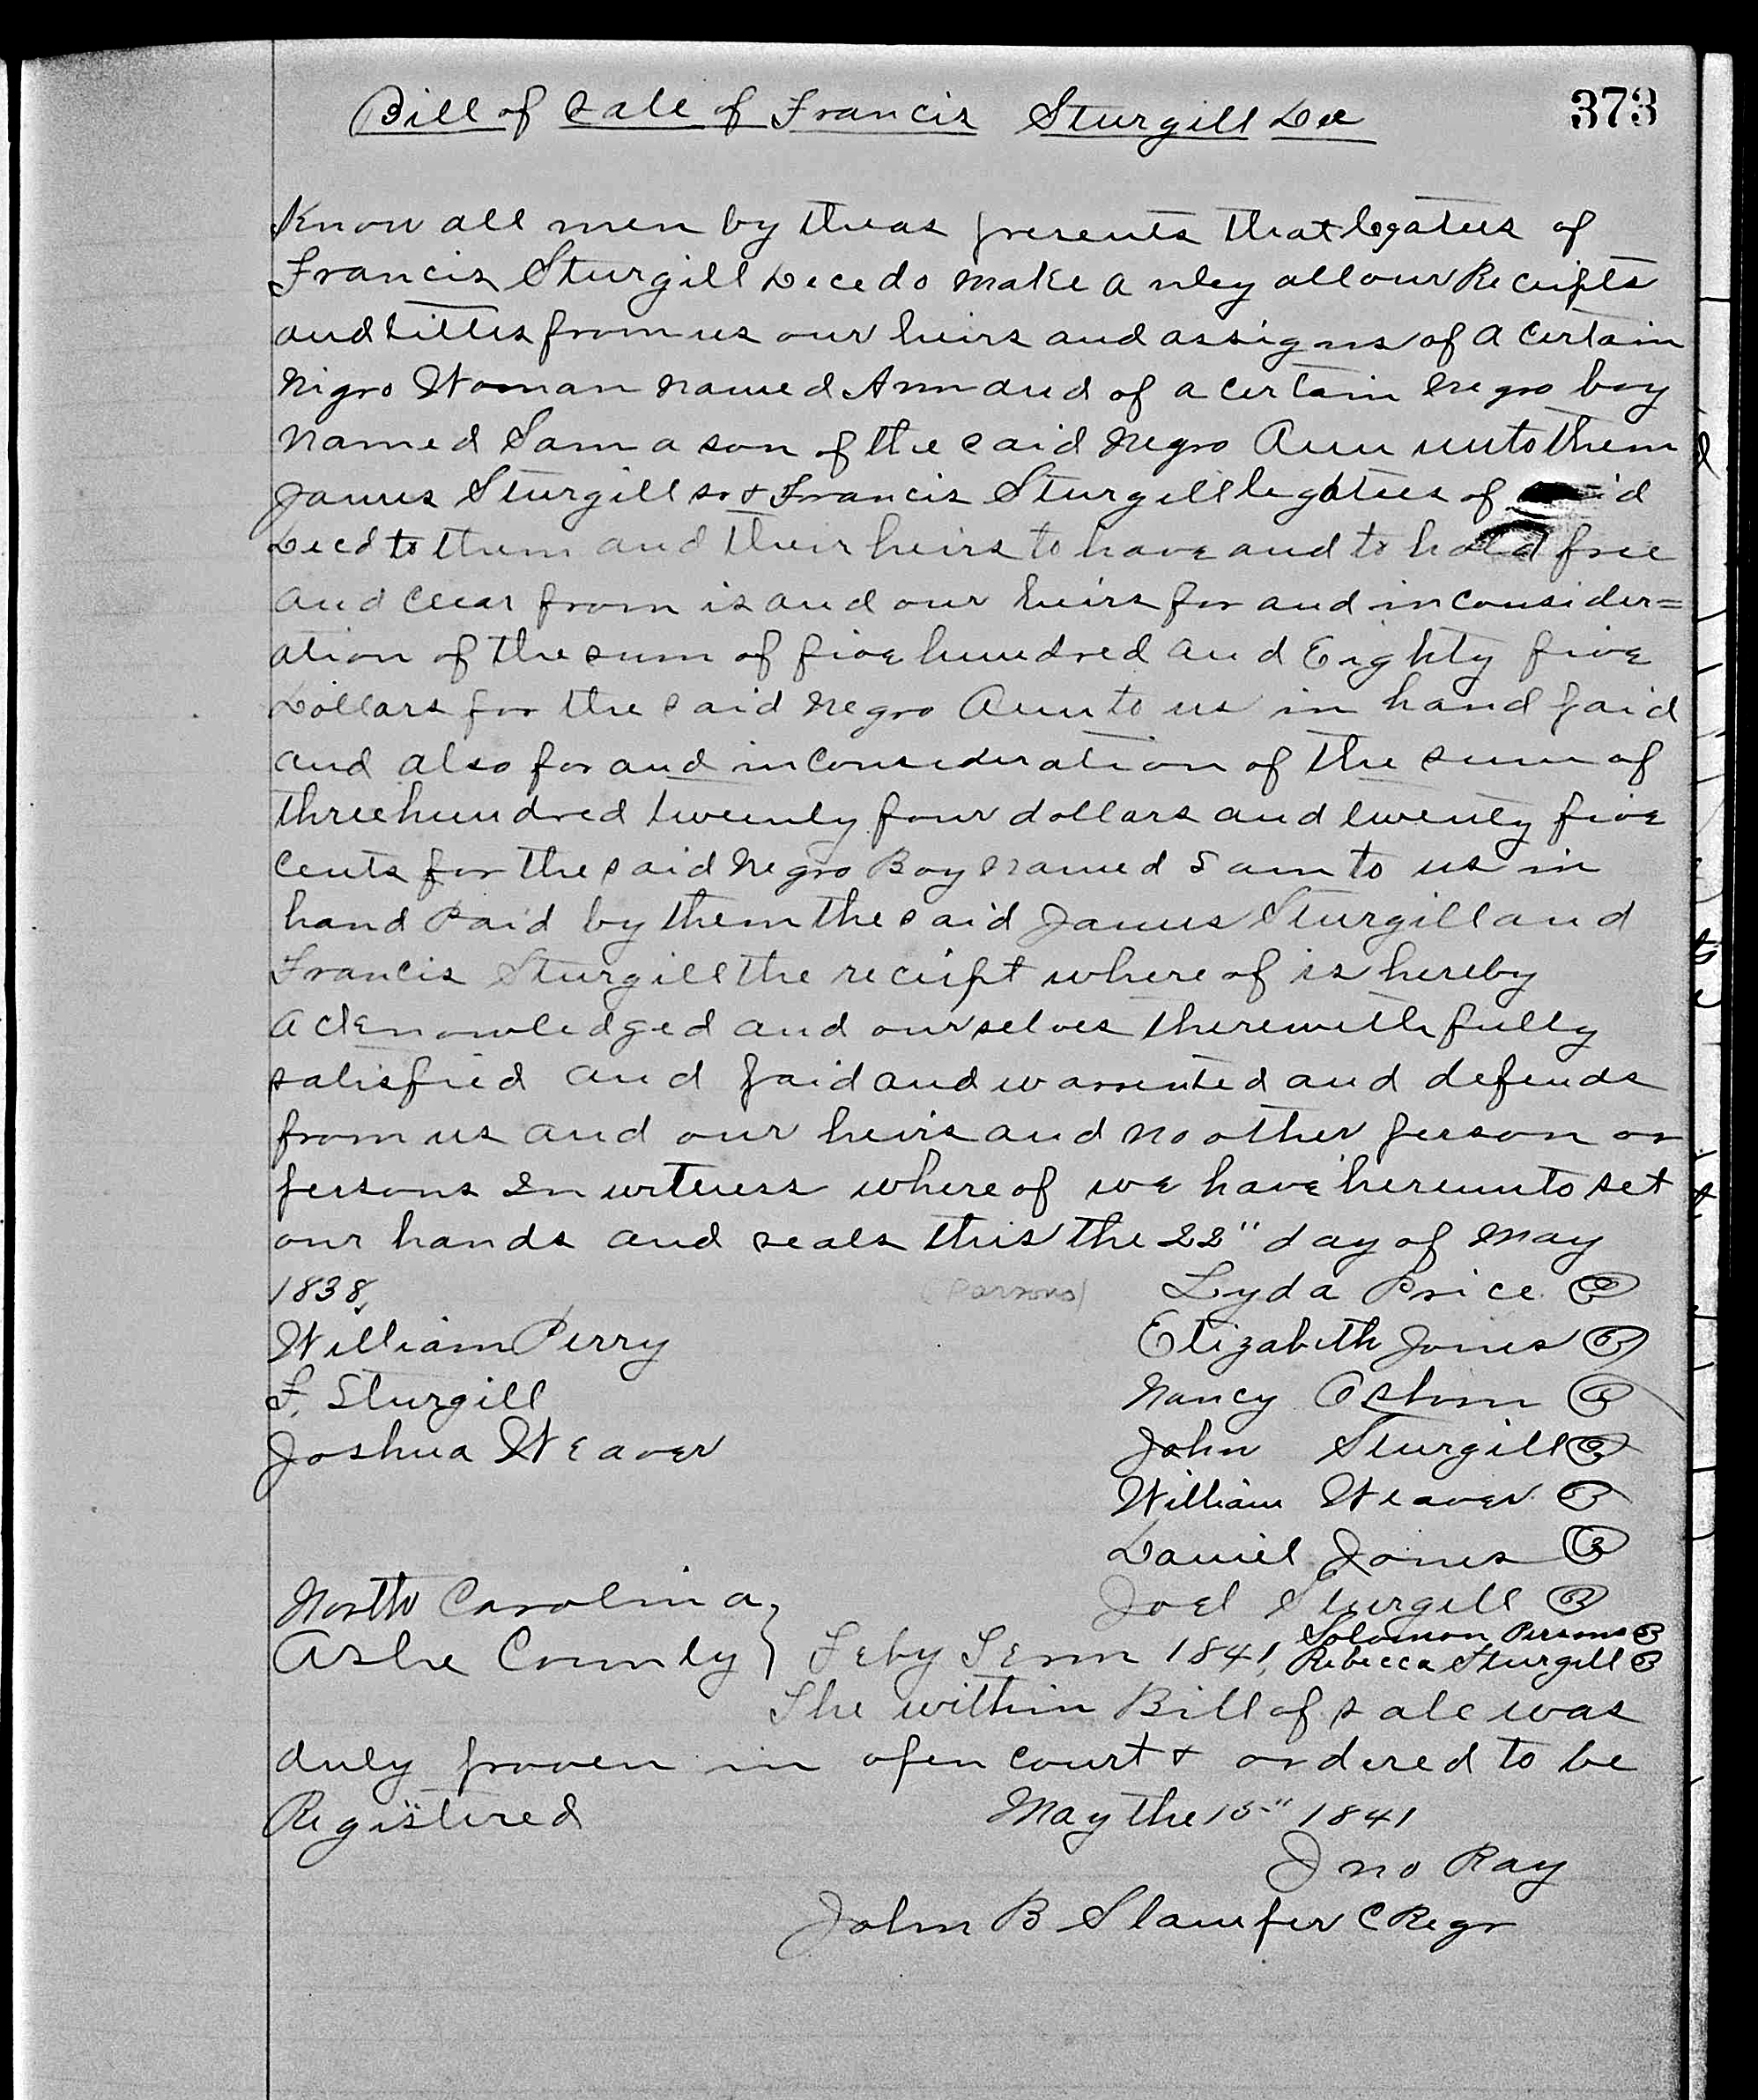 Bill of Sale of Francis Sturgill Dec
373
Know all men by theas presents that legatees of
Francis Sturgill Dece do make a nley all our Receipts
and titles from us our heirs and assigns of a certain
Nigro Woman named Ann and of a certain Negro boy
Named Sam a son of the said Negro Ann unto them
James Sturgill sr & Francis Sturgill legatees of
Decd to them and their heirs to have and to hold free
and clear from is and our heirs for and in consider=
ation of the sum of five hundred and Eighty five
Dollars for the said Negro Ann to us in hand paid
and also for and in consideration of the sum of
three hundred twenty four dollars and twenty five
cents for the said Negro Boy named Sam to us in
hand Paid by them the said James Sturgill and
Francis Sturgill the receipt where of is hereby
acknowledged and ourselves therewith fully
satisfied and paid and warrented and defends
from us and our heirs and no other person or
persons In witness where of we have hereunto set
our hands and seals this the 22" day of May
1838, (Parsons) Lyda Price
William Perry Elizabeth Jones
F. Sturgill Nancy Osborn
Joshua Weaver John Sturgill
William Weaver
Daniel Jones
North Carolina, Joel Sturgill
Solomon Persons
Ashe County } Feby Term 1841, Rebecca Sturgill
The within Bill of sale was
duly proven in open court & ordered to be
Registered May the 15" 1841
Jno Ray
John B Slamper C Regr